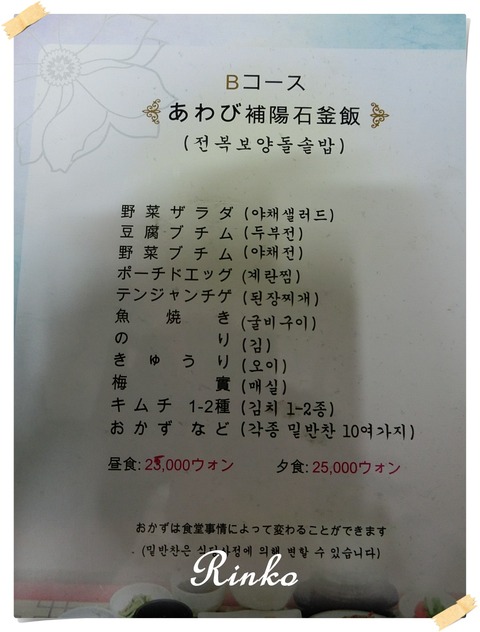 Bコース
あわび補陽石釜飯
(전복보양돌솥밥)
野菜ザラダ (야채샐러드)
豆腐ブチム (두부전)
野菜ブチム (야채전)
ポーチドエッグ (계란찜)
テンジャンチゲ (된장찌개)
魚焼き (굴비구이)
のり (김)
きゅうり (오이)
梅實 (매실)
キムチ 1-2種 (김치 1-2종)
おかずなど (각종 밑반찬 10여가지)
昼食: 25,000ウォン 夕食: 25,000ウォン
おかずは食堂事情によって変わることができます
(밑반찬은 식당사정에 의해 변할 수 있습니다)
Rinko